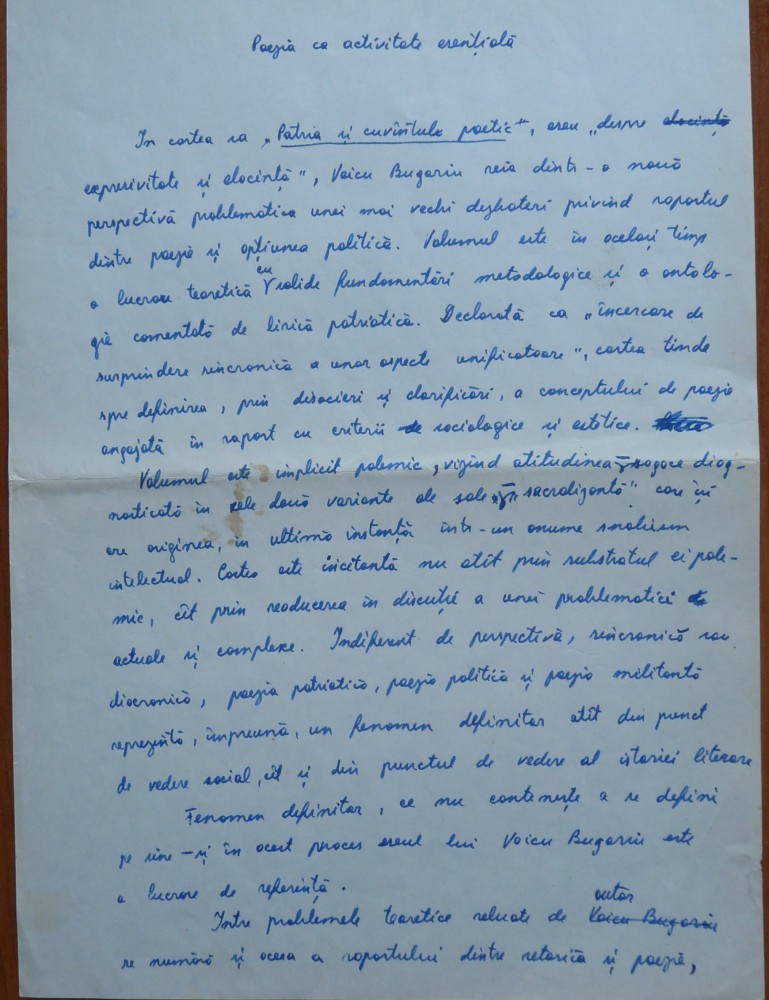 Poezia ca activitate esențială
In cartea sa „Patria și cuvîntul poetic", eseu „despre elocință
expresivitate și elocință", Voicu Bugariu reia dintr-o nouă
perspectivă problematica unei mai vechi dezbateri privind raportul
dintre poezie și opțiunea politică. Volumul este în același timp
o lucrare teoretică cu valide fundamentări metodologice și o antolo-
gie comentată de lirică patriotică. Declarată ca „încercare de
surprindere sincronică a unor aspecte unificatoare", cartea tinde
spre definirea, prin disocieri și clarificări, a conceptului de poezie
angajată în raport cu criterii de sociologice și estetice.
Volumul este implicit polemic, vizînd atitudinea sagace diag-
nosticată în cele două variante ale sale „sacralizantă" care își
are originea, în ultimă instanță într-un anume snobism
intelectual. Cartea este incitantă nu atît prin substratul ei pole-
mic, cît prin readucerea în discuție a unei problematici
actuale și complexe. Indiferent de perspectivă, sincronică sau
diacronică, poezia patriotică, poezia politică și poezia militantă
reprezintă, împreună, un fenomen definitor atît din punct
de vedere social, cît și din punctul de vedere al istoriei literare
Fenomen definitor, ce nu contenește a se defini
pe sine – și în acest proces eseul lui Voicu Bugariu este
o lucrare de referință.
Intre problemele teoretice reluate de Voicu Bugariu autor
se numără și aceea a raportului dintre retorică și poezie,